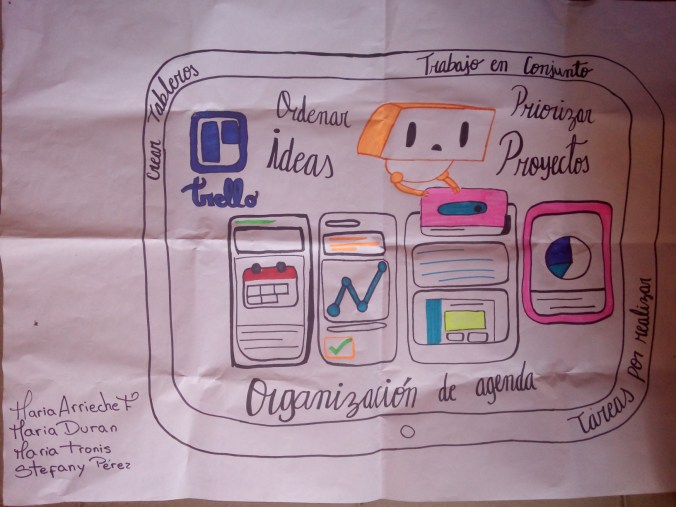 Crear Tableros
Trabajo en Conjunto
Ordenar
ideas
Priorizar
Proyectos
trello
Organización de agenda
Tareas por realizar
Maria Arrieche
Maria Duran
Maria Tronis
Stefany Pérez